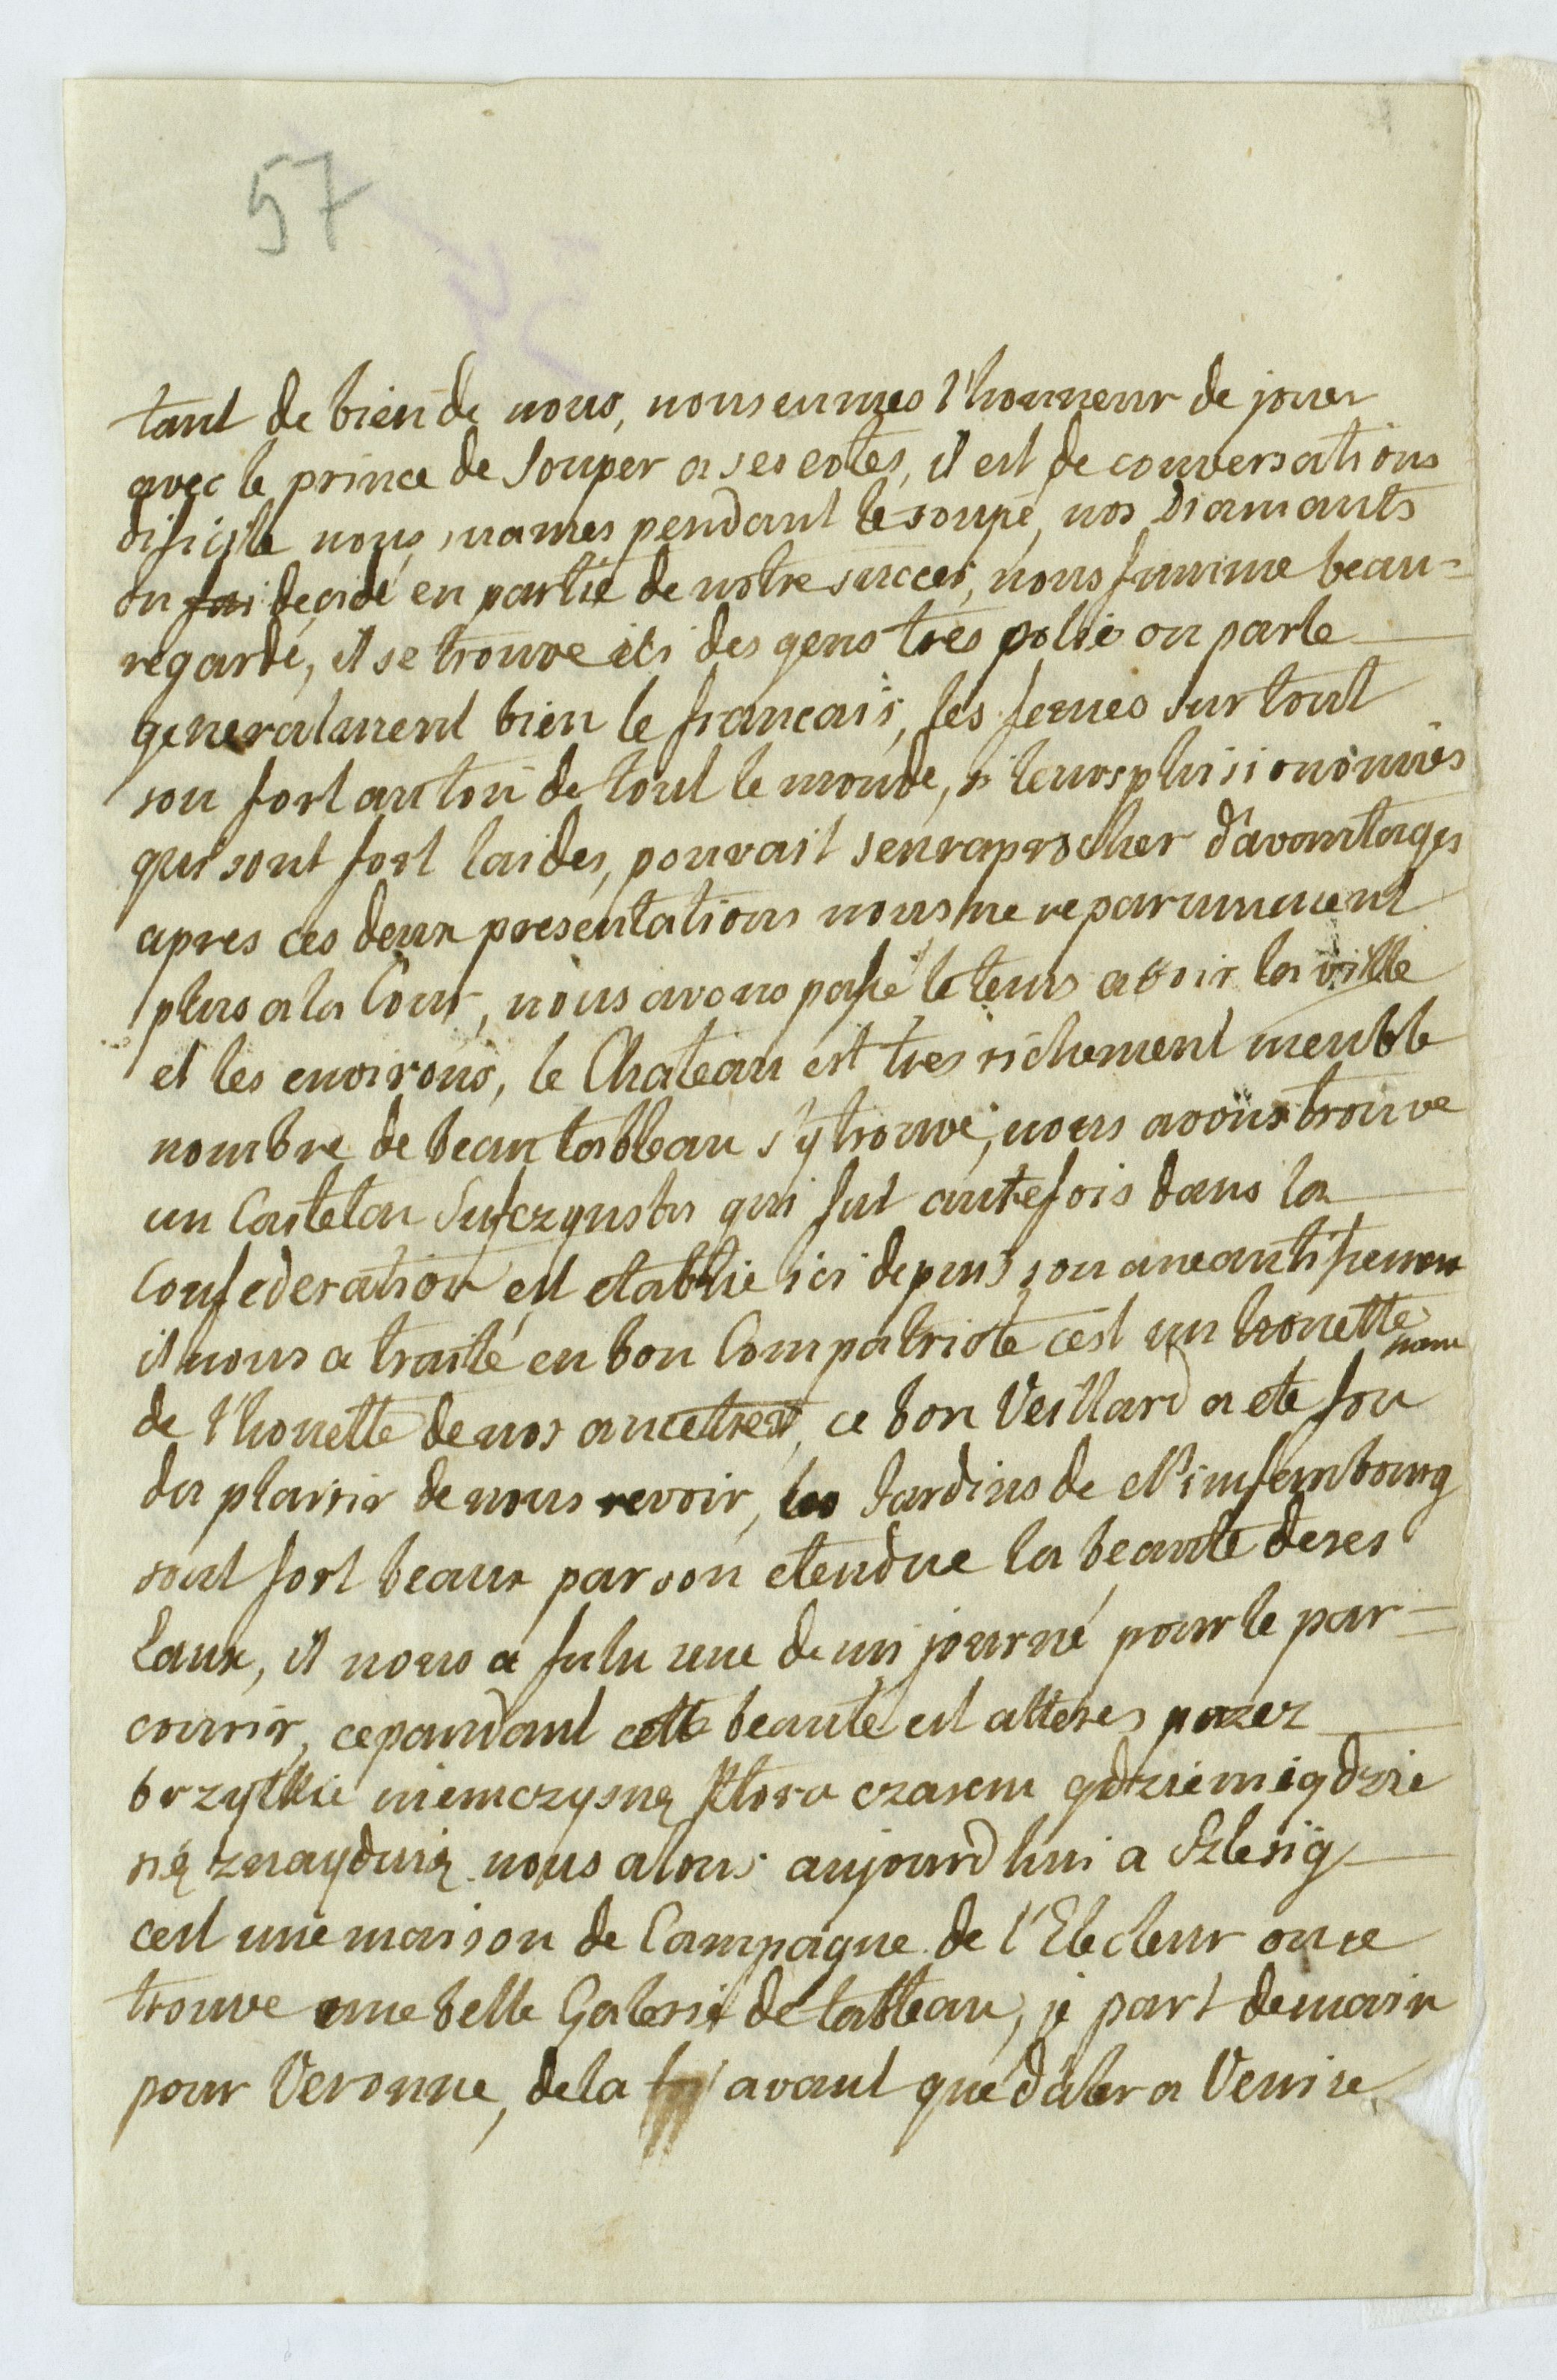 57
tant de bien de nous, nous eumes l'honneur de jouer
avec le prince de souper a ses cotes, il est de conversations
dificile nous suames pendant le soupé, nos Diamants
on fai decidé en partie de notre succes, nous fumme beau=
regardé, il se trouve ici des gens tres polie on parle
generalment bien le francais, les femes sur tout
son fort au ton de tout le monde, si leurs phisionomies
qui sont fort laides, pouvait s'en raprocher d'avantages
apres ces deux presentations nous ne reparumment
plus a la Cour, nous avons passé le tems a voir la ville
et les environs, le Chateau est tres richement meuble
nombre de beau tableau s'y trouve, nous avons trouve
un Castelan Sufczynski qui fut autrefois dans la
Confederation est etablie ici depuis son aneantissemen
il nous a traité en bon Compatriote c'est un honette
nom
de l'honette de nos ancetres, ce bon Veillard a ete fou
du plaisir de nous revoir, les Jardins de Nimfembourg
sont fort beaux par son etendue la beaute de ses
Eaux, il nous a falu une demi journé pour le par=
courir, cepandant cette beaute est alteres przez
brzytkie niemczysną ktora czasem gdzieniegdzie
się znayduią nous alons aujourd'hui a Szlesig
c'est une maison de Campagne de l'Electeur ou se
trouve une belle Galerie de tableau, je part demain
pour Veronne, de la avant que d'aler a Venise